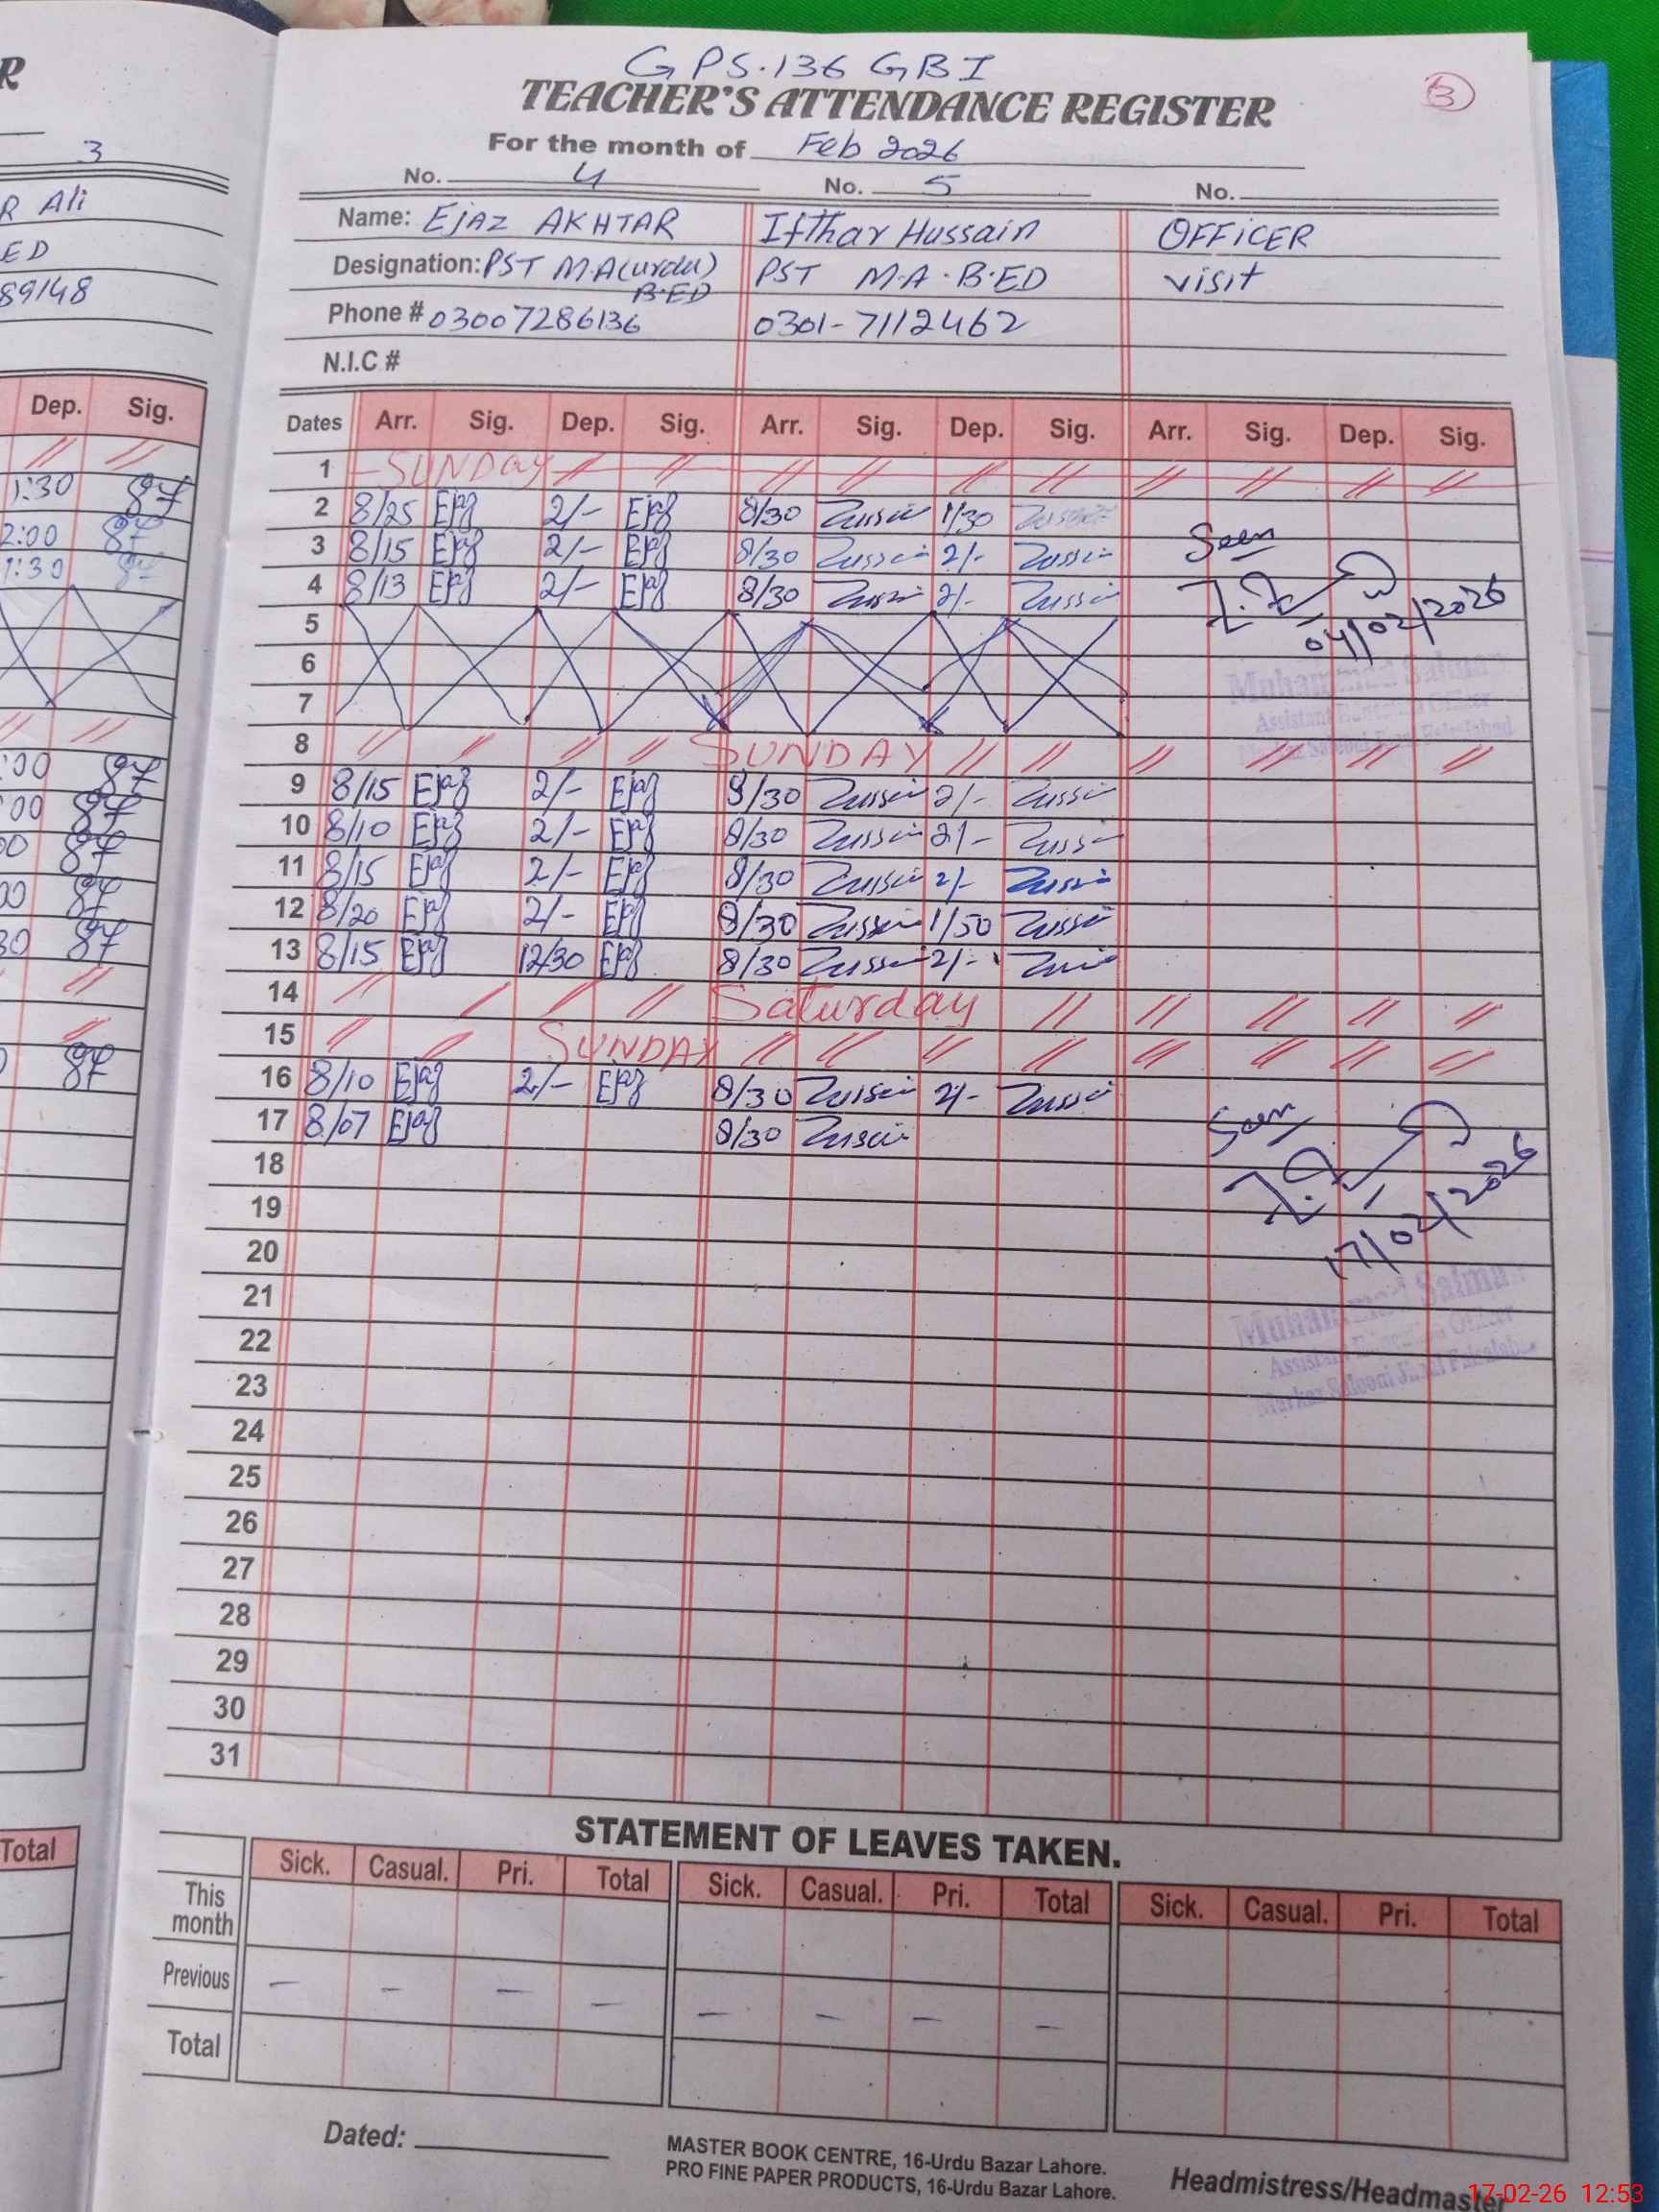 R
3
R Ali
ED
89148
Dep. Sig.
1:30
2:00
1:30
Total
GPS.136 GBI
3
TEACHER'S ATTENDANCE REGISTER
For the month of Feb 2026
No. 4 No. 5 No.
Name: Ejaz AKHTAR Ifthar Hussain OFFICER
Designation: PST M.A(urdu) B.ED PST M.A.B.ED visit
Phone # 03007286136 0301-7112462
N.I.C #
Dates Arr. Sig. Dep. Sig. Arr. Sig. Dep. Sig. Arr. Sig. Dep. Sig.
1 SUNDay
2 8/25 Ejaz 2/- Ejaz 8/30 1/30
3 8/15 Ejaz 2/- Ejaz 8/30 2/- Seen
4 8/13 Ejaz 2/- Ejaz 8/30 2/-
04/02/2026
5
6
Muhammad Salman
7
Assistant Education Officer
8 SUNDAY
9 8/15 Ejaz 2/- Ejaz 8/30 2/-
10 8/10 Ejaz 2/- Ejaz 8/30 2/-
11 8/15 Ejaz 2/- Ejaz 8/30 2/-
12 8/20 Ejaz 2/- Ejaz 8/30 1/50
13 8/15 Ejaz 12/30 Ejaz 8/30 2/-
14 Saturday
15 SUNDAY
16 8/10 Ejaz 2/- Ejaz 8/30 2/-
17 8/07 Ejaz 8/30 Seen
18
19
17/02/2026
20
21
Muhammad Salman
22
Assistant Education Officer
23
24
25
26
27
28
29
30
31
STATEMENT OF LEAVES TAKEN.
Sick. Casual. Pri. Total Sick. Casual. Pri. Total Sick. Casual. Pri. Total
This month
Previous - - - - - - - -
Total
Dated:
MASTER BOOK CENTRE, 16-Urdu Bazar Lahore.
PRO FINE PAPER PRODUCTS, 16-Urdu Bazar Lahore.
Headmistress/Headmaster
17-02-26 12:53